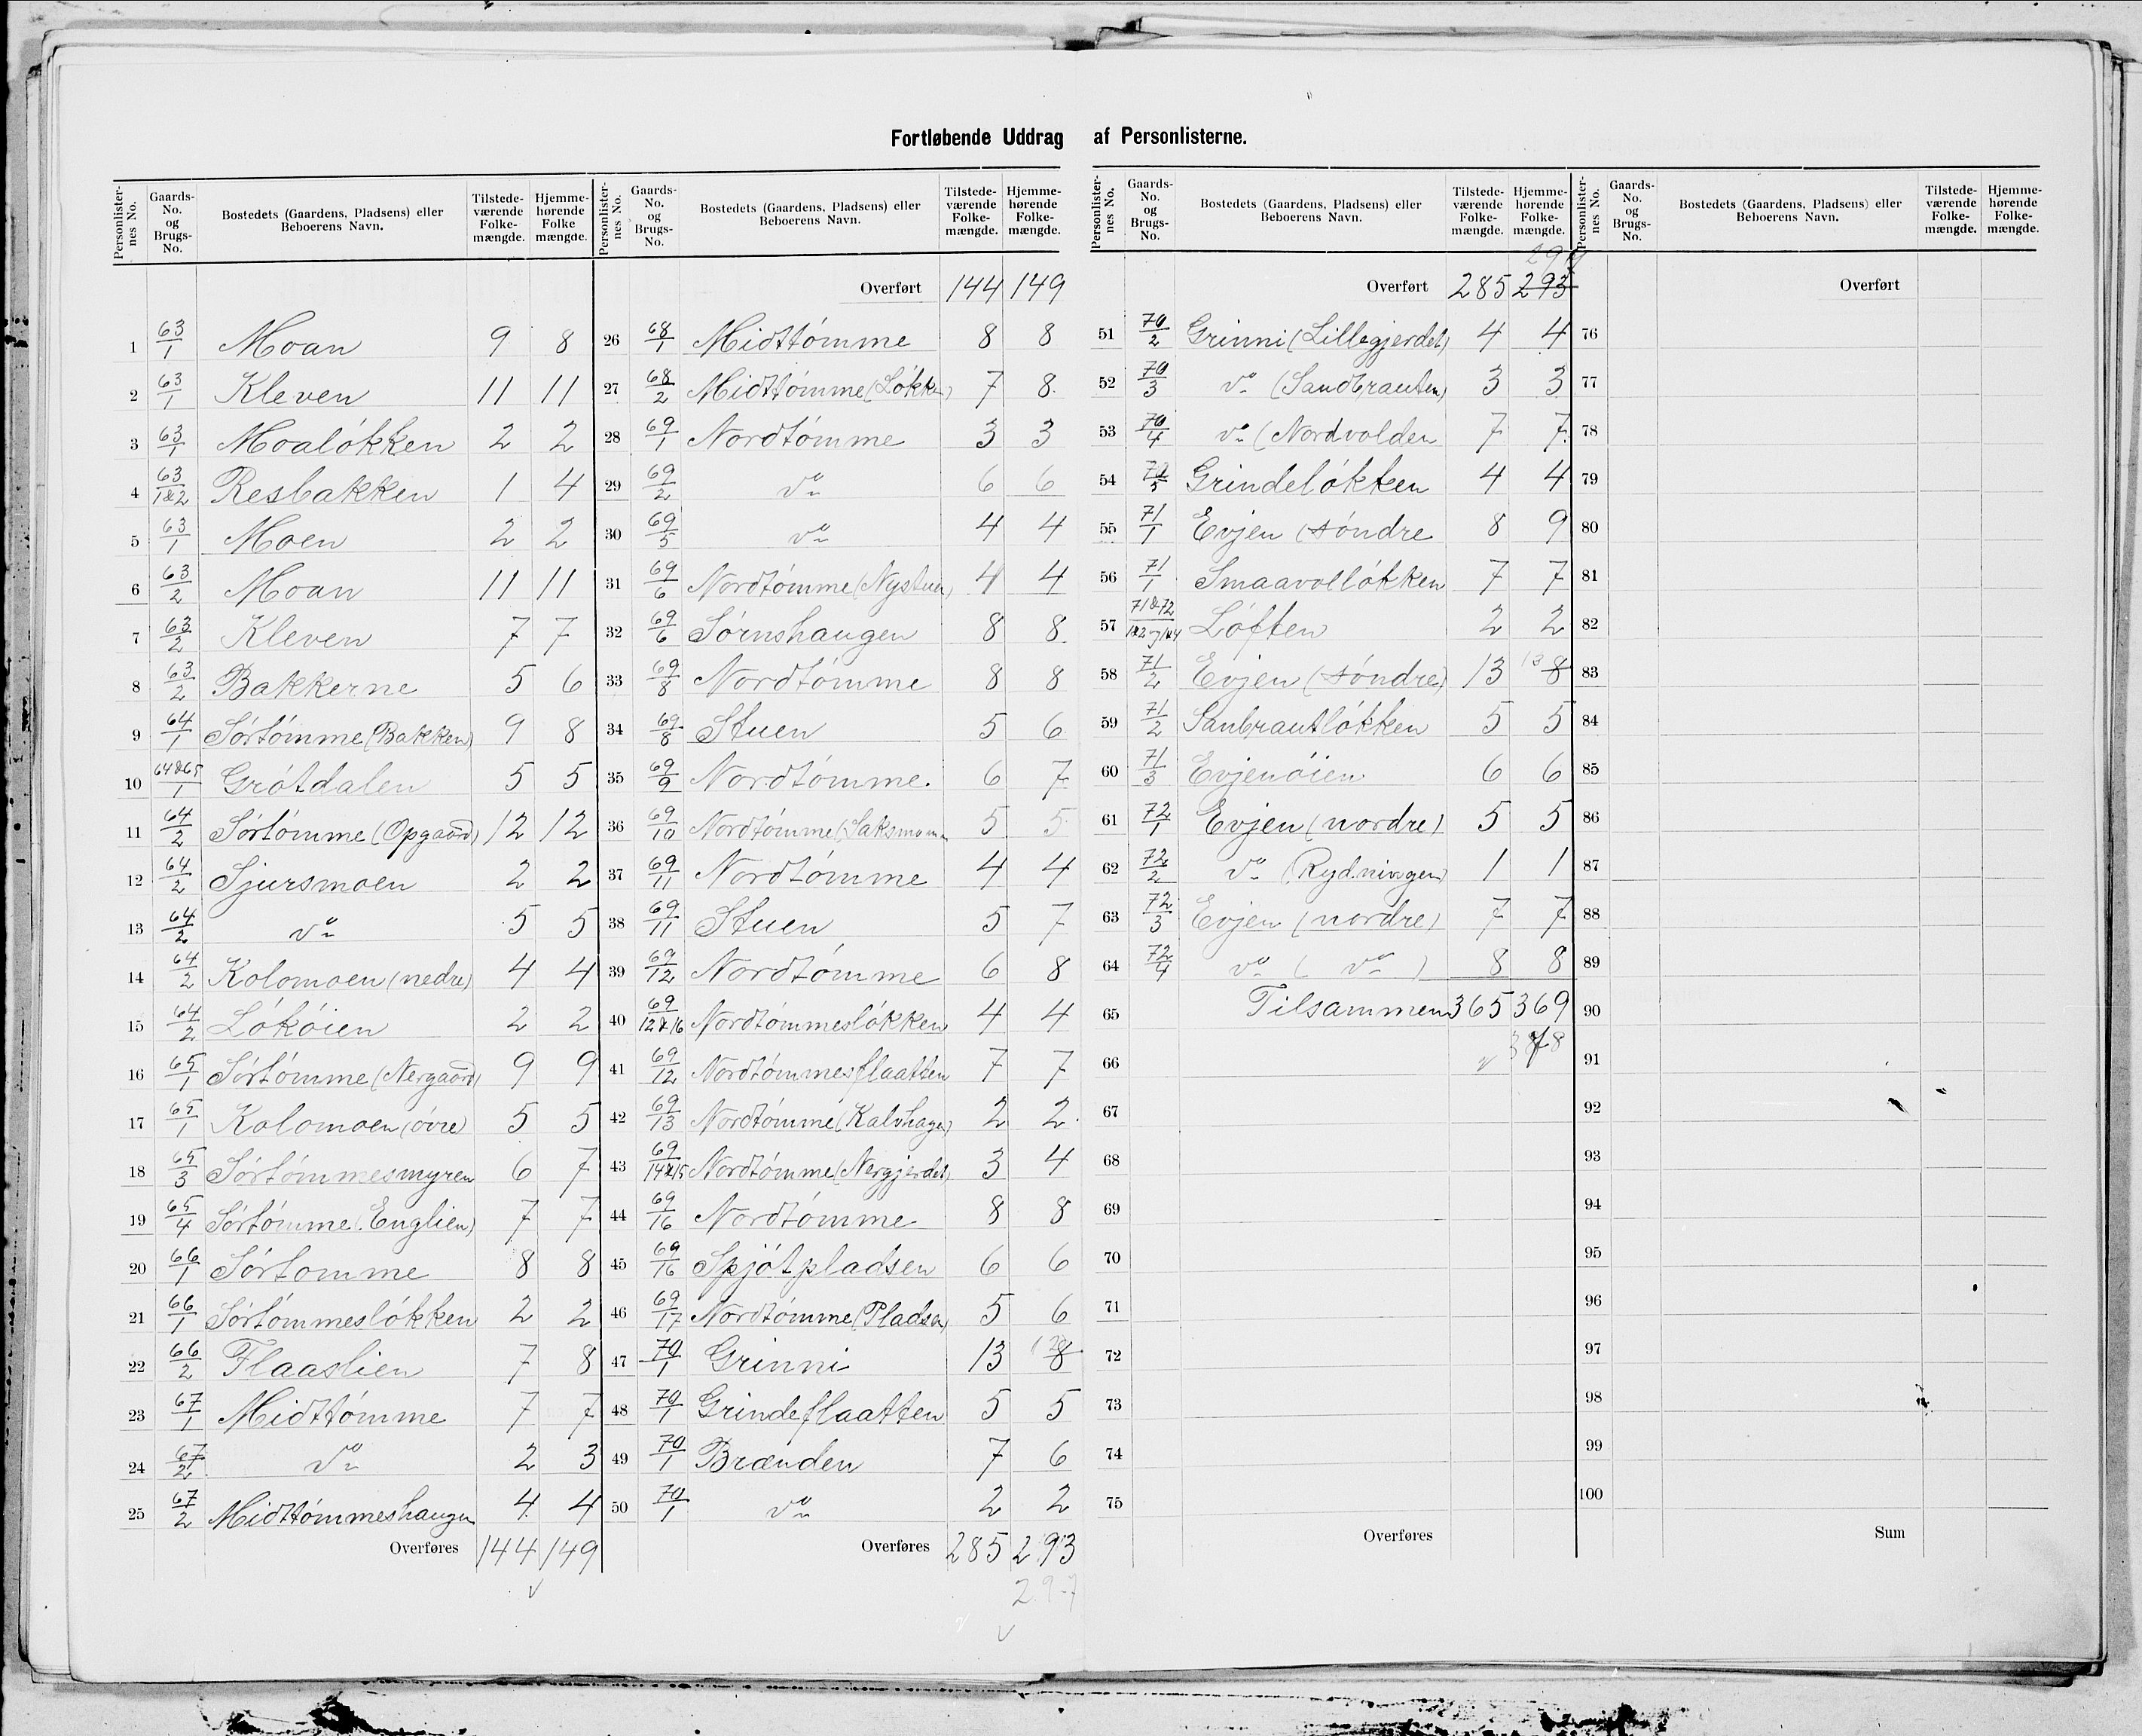 Fortløbende Uddrag af Personlisterne.
Personlister-nes No. Gaards-No. og Brugs-No. Bostedets (Gaardens, Pladsens) eller Beboerens Navn. Tilstede-værende Folke-mængde. Hjemme-hørende Folke mængde.
1 63/1 Moan 9 8
2 63/1 Kleven 11 11
3 63/1 Moaløkken 2 2
4 63/1&2 Resbakken 1 4
5 63/1 Moen 2 2
6 63/2 Moan 11 11
7 63/2 Kleven 7 7
8 63/2 Bakkerne 5 6
9 64/1 Sørtømme (Bakken) 9 8
10 64&65/1 Grøtdalen 5 5
11 64/2 Sørtømme (Opgaard) 12 12
12 64/2 Sjursmoen 2 2
13 64/2 do 5 5
14 64/2 Kolomoen (nedre) 4 4
15 64/2 Løkøien 2 2
16 65/1 Sørtømme (Nergaard) 9 9
17 65/1 Kolomoen (øvre) 5 5
18 65/3 Sørtømmesmyren 6 7
19 65/4 Sørtømme (Englien) 7 7
20 66/1 Sørtomme 8 8
21 66/1 Sørtømmesløkken 2 2
22 66/2 Flaaslien 7 8
23 67/1 Midttømme 7 7
24 67/2 do 2 3
25 67/2 Midttømmeshaugen 4 4
Overføres 144 149
Personlister-nes No. Gaards-No. og Brugs-No. Bostedets (Gaardens, Pladsens) eller Beboerens Navn. Tilstede-værende Folke-mængde. Hjemme-hørende Folke-mængde.
Overført 144 149
26 68/1 Midttømme 8 8
27 68/2 Midttømme (Løkken) 7 8
28 69/1 Nordtømme 3 3
29 69/2 do 6 6
30 69/5 do 4 4
31 69/6 Nordtømme (Nystuen) 4 4
32 69/6 Sørnshaugen 8 8
33 69/8 Nordtømme 8 8
34 69/8 Stuen 5 6
35 69/9 Nordtømme. 6 7
36 69/10 Nordtømme (Saksmoen 5 5
37 69/11 Nordtømme 4 4
38 69/11 Stuen 5 7
39 69/12 Nordtømme 6 8
40 69/12&16 Nordtømmesløkken 4 4
41 69/12 Nordtømmesflaatten 7 7
42 69/13 Nordtømme (Kalvhagen) 2 2
43 69/14&15 Nordtømme (Nergjerdet) 3 4
44 69/16 Nordtømme 8 8
45 69/16 Spjøtpladsen 6 6
46 69/17 Nordtømme (Pladsen) 5 6
47 70/1 Grinni 13 12 8
48 70/1 Grindeflaatten 5 5
49 70/1 Brænden 7 6
50 70/1 do 2 2
Overføres 285 293
297
Personlister-nes No. Gaards-No. og Brugs-No. Bostedets (Gaardens, Pladsens) eller Beboerens Navn. Tilstede-værende Folke-mængde. Hjemme-hørende Folke-mængde.
297
Overført 285 293
51 70/2 Grinni (Lillegjerdet) 4 4
52 70/3 do (Sandbrauten) 3 3
53 70/4 do (Nordvolden 7 7
54 70/5 Grindeløkken 4 4
55 71/1 Evjen (søndre 8 9
56 71/1 Smaavolløkken 7 7
57 71&72/1&2 og 1&4 Løften 2 2
58 71/2 Evjen (søndre) 13 13 8
59 71/2 Sanbrautløkken 5 5
60 71/3 Evjenøien 6 6
61 72/1 Evjen (nordre) 5 5
62 72/2 do (Rydningen) 1 1
63 72/3 Evjen (nordre) 7 7
64 72/4 do ( do ) 8 8
65 Tilsammen 365 369
66 378
67
68
69
70
71
72
73
74
75
Overføres
Personlister-nes No. Gaards-No. og Brugs-No. Bostedets (Gaardens, Pladsens) eller Beboerens Navn. Tilstede-værende Folke-mængde. Hjemme-hørende Folke-mængde.
Overført
76
77
78
79
80
81
82
83
84
85
86
87
88
89
90
91
92
93
94
95
96
97
98
99
100
Sum